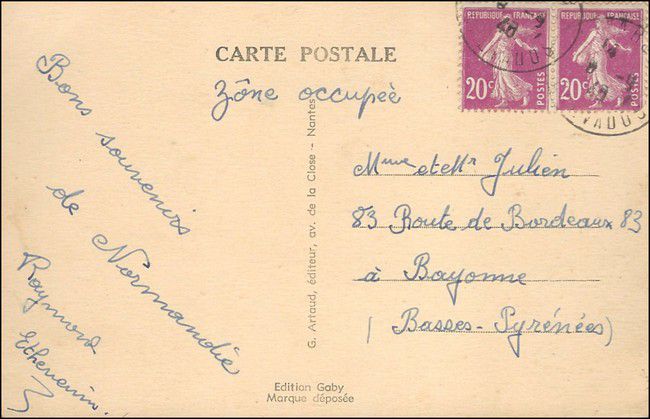 CARTE POSTALE
zône occupée
Bons souvenirs
de Normandie
Raymond
G. Artaud, éditeur, av. de la Close - Nantes
Mme et Mr Julien
83 Route de Bordeaux 83
à Bayonne
(Basses-Pyrénées)
Edition Gaby
Marque déposée
REPUBLIQUE FRANÇAISE
20c
POSTES
REPUBLIQUE FRANÇAISE
20c
POSTES